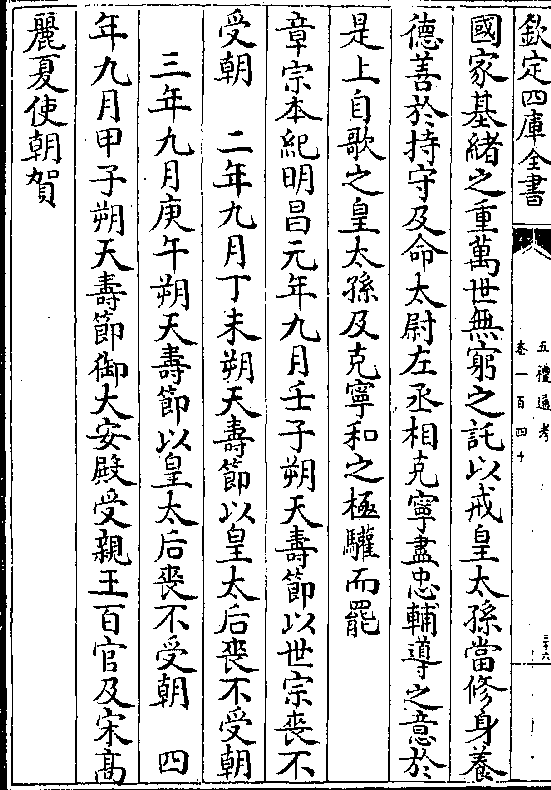 欽定四庫全書
五禮通考
卷一百四十
三十六
國家基緒之重萬世無窮之託以戒皇太孫當修身養
德善於持守及命太尉左丞相克寧盡忠輔導之意於
是上自歌之皇太孫及克寧和之極驩而罷
章宗本紀明昌元年九月壬子朔天壽節以世宗喪不
受朝　二年九月丁未朔天壽節以皇太后喪不受朝
三年九月庚午朔天壽節以皇太后喪不受朝　四
年九月甲子朔天壽節御大安殿受親王百官及宋高
麗夏使朝賀